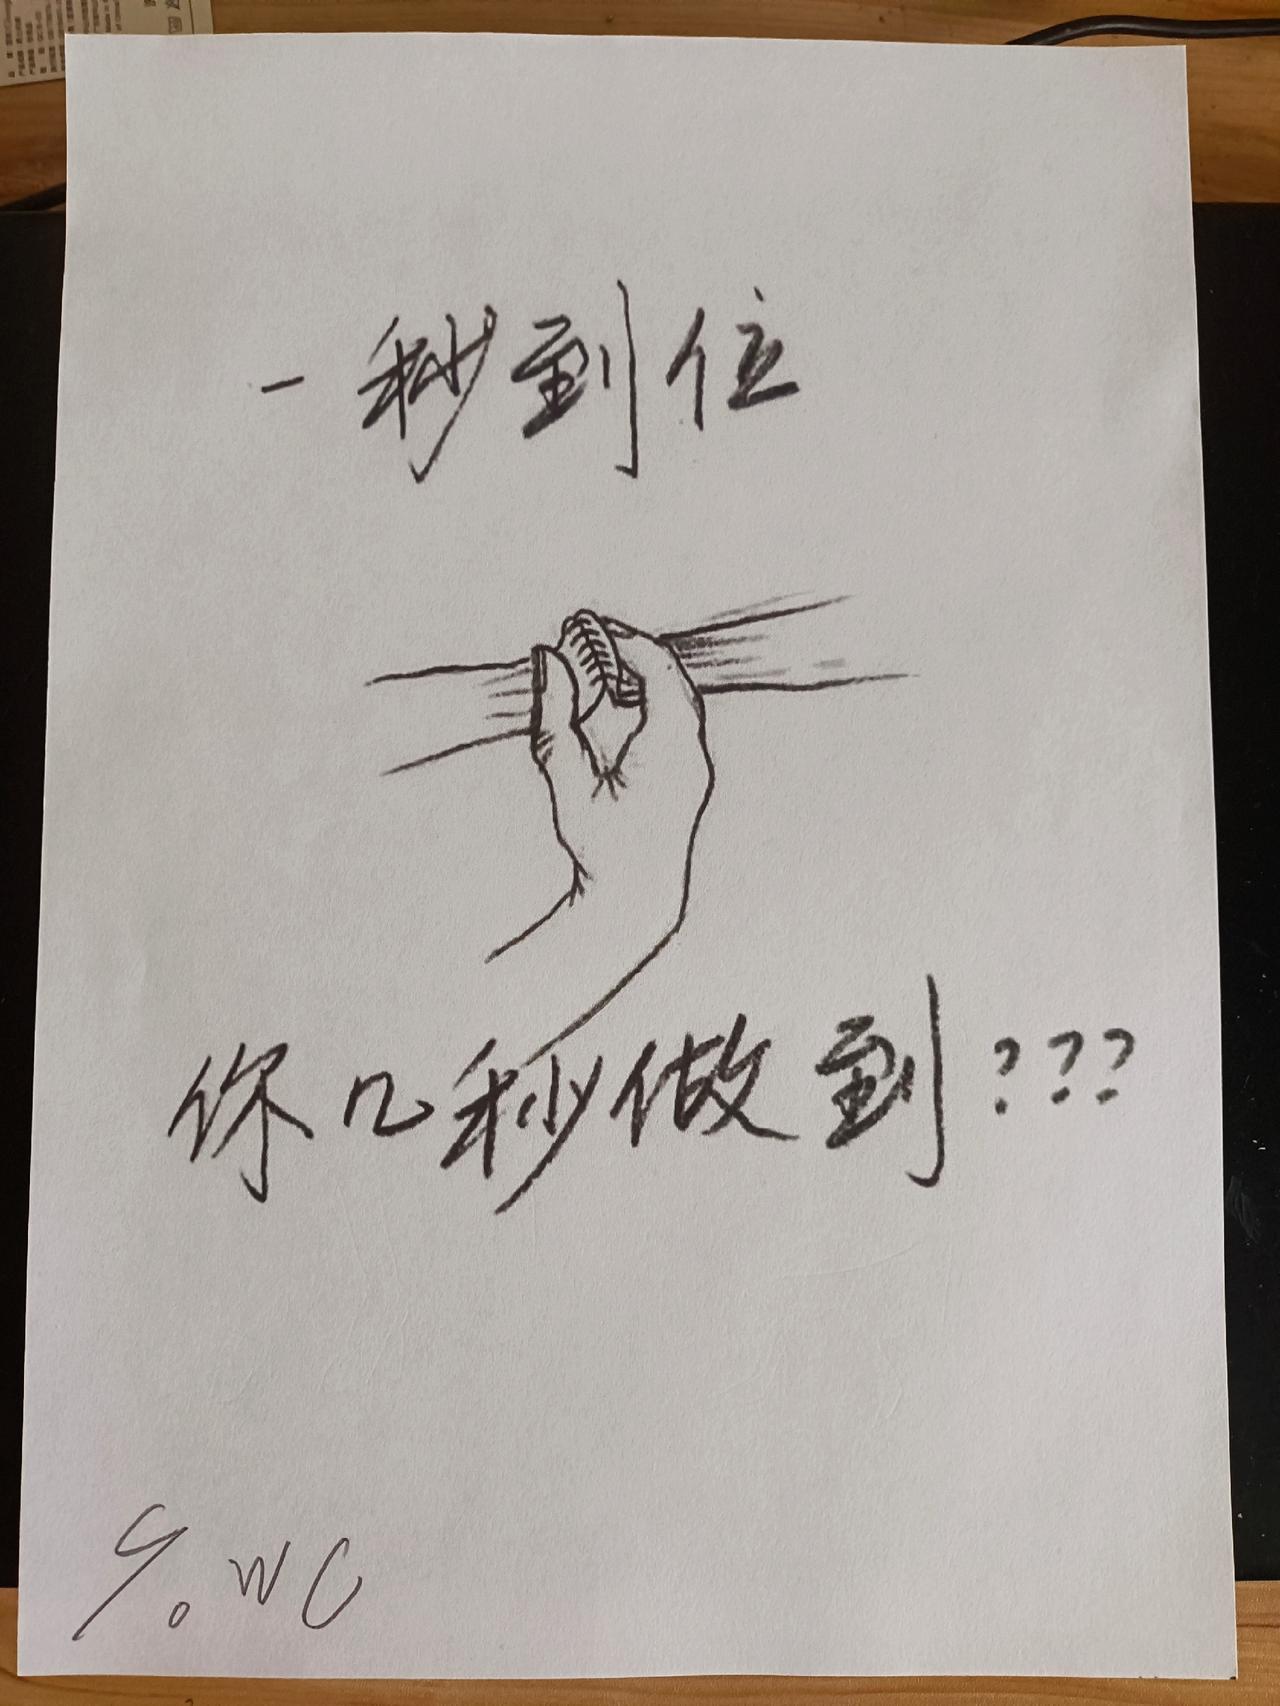 一秒到位
你几秒做到???
G.WC